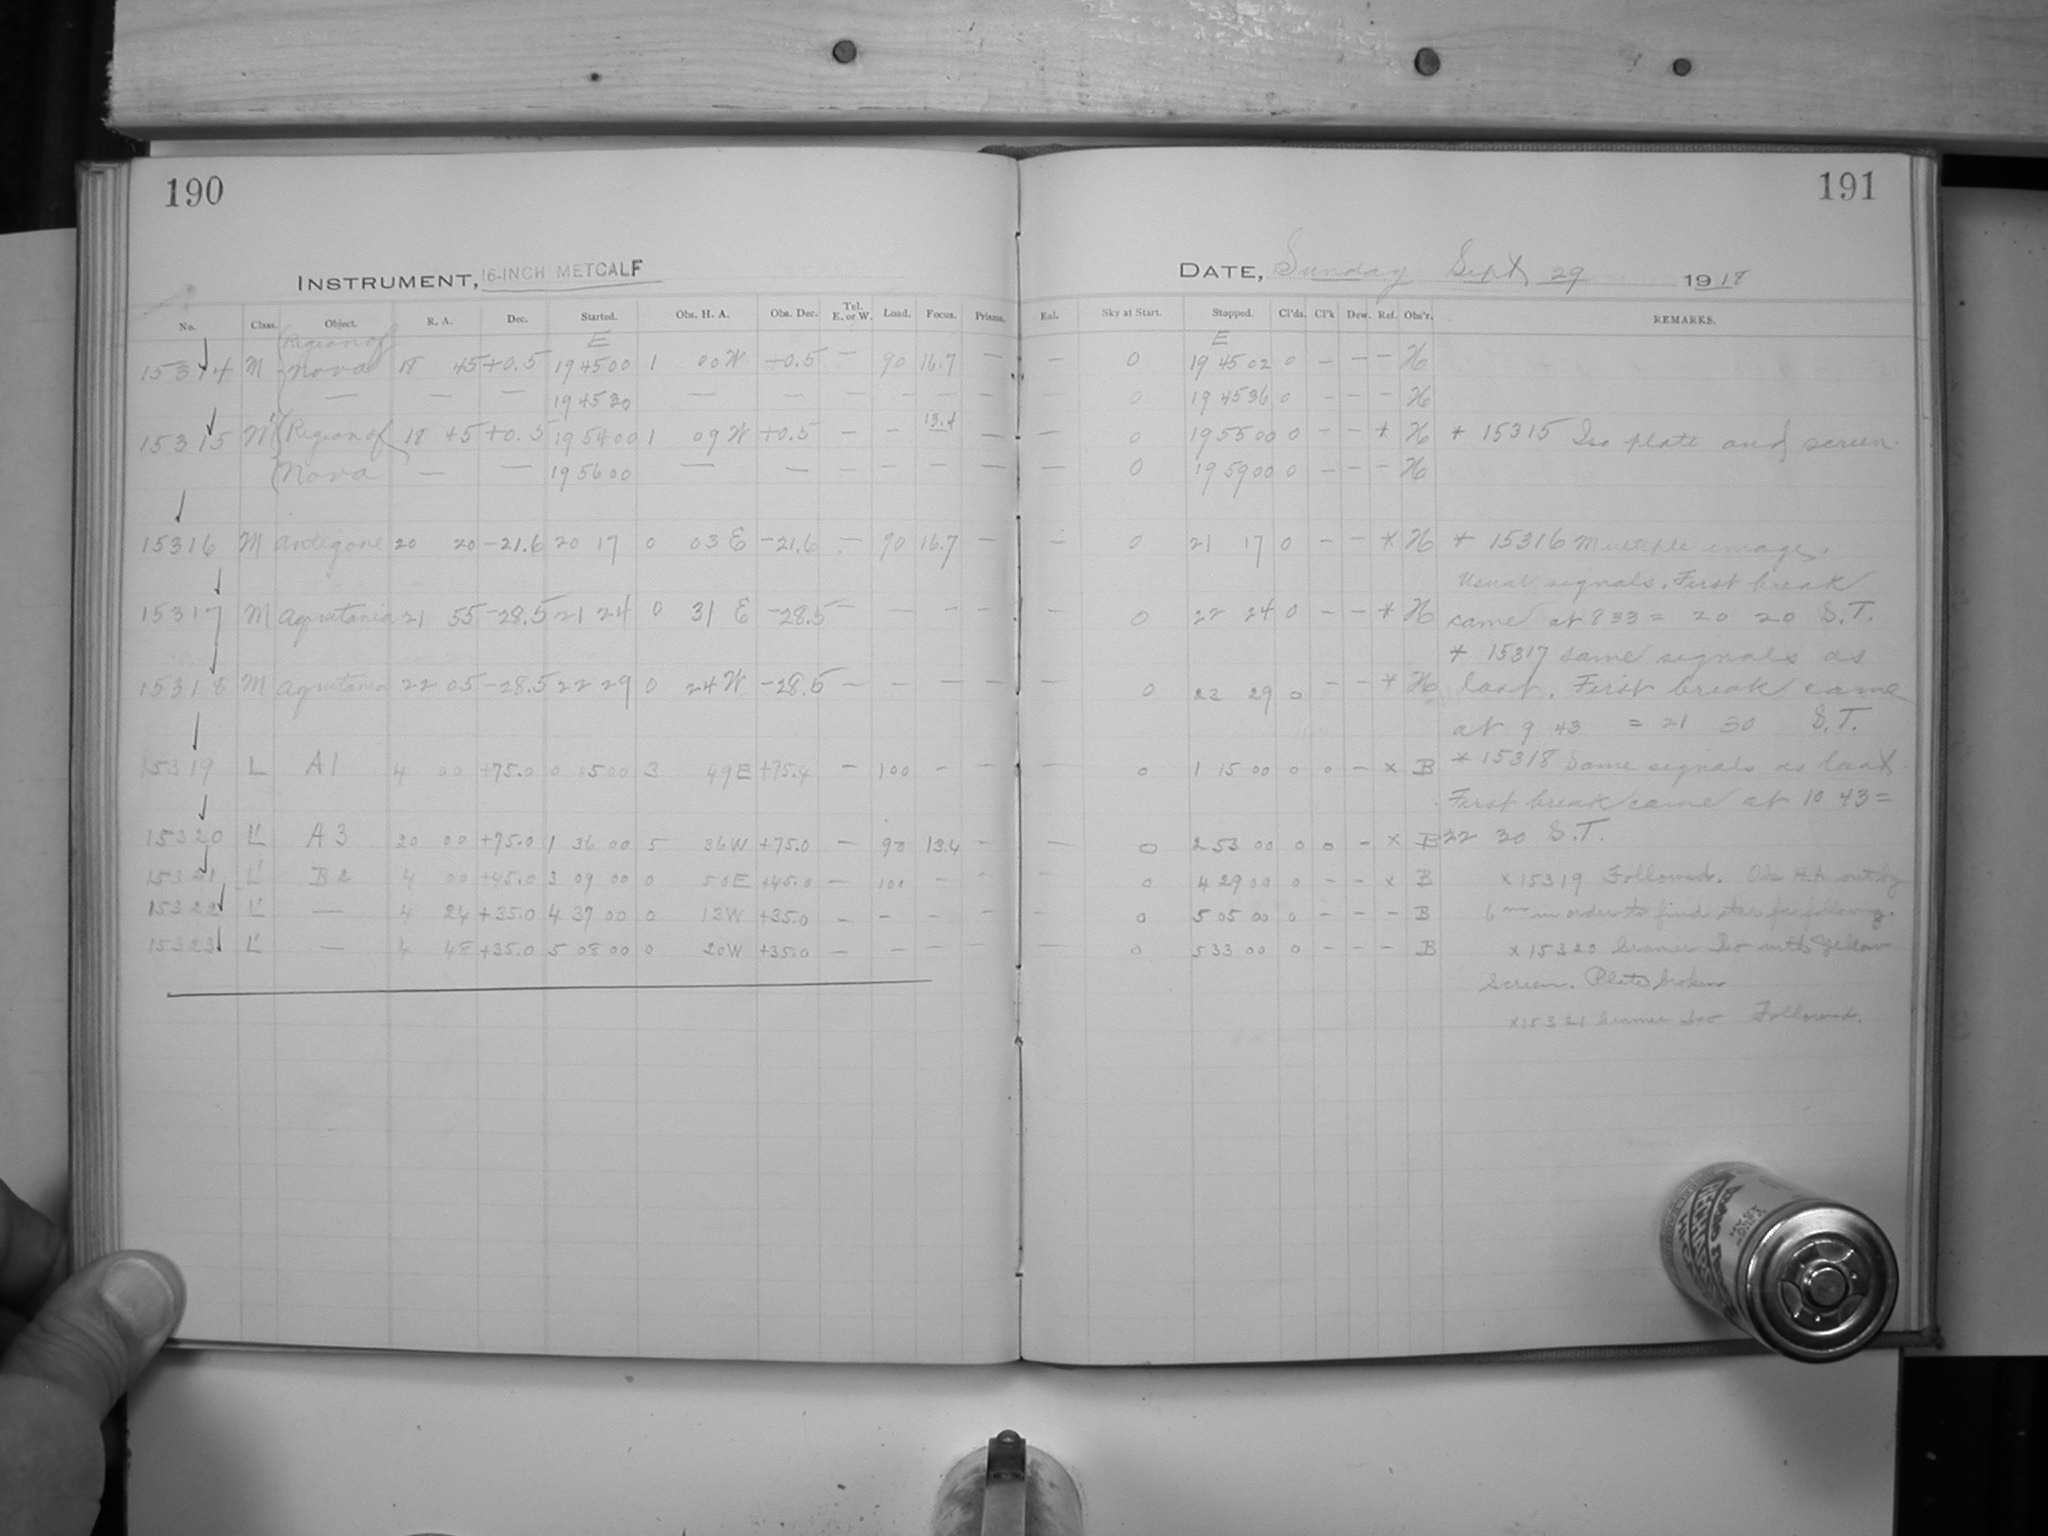 190
INSTRUMENT, 16-INCH METCALF
No. Class. Object. R. A. Dec. Started. Obs. H. A. Obs. Dec. Tel. E. or W. Load. Focus. Prisms.
E
15314 M Region of Nova 18 45 +0.5 19 45 00 1 00 W +0.5 — 90 16.7 —
— — — 19 45 30 — — — — — —
15315 M' Region of 18 45 +0.5 19 54 00 1 09 W +0.5 — — 13.4 —
Nova — — 19 56 00 — — — — — —
15316 M Antigone 20 20 -21.6 20 17 0 03 E -21.6 — 90 16.7 —
15317 M 21 55 -28.5 21 24 0 31 E -28.5 — — — —
15318 M 22 05 -28.5 22 29 0 24 W -28.5 — — — —
15319 L A1 4 00 +75.0 0 05 00 3 49 E +75.4 — 100 - -
15320 L' A3 20 00 +75.0 1 36 00 5 36 W +75.0 — 90 13.4 -
15321 L' B2 4 00 +45.0 3 09 00 0 50 E +45.0 — 100 - -
15322 L' — 4 24 +35.0 4 37 00 0 13 W +35.0 - - - -
15323 L' — 4 48 +35.0 5 08 00 0 20 W +35.0 — - - -
191
DATE, Sunday Sept 29 1918
Sky at Start. Stopped. Cl'ds. Cl'k Dew. Ref. Obs'r. REMARKS.
E
— 0 19 45 02 0 - - - H
— 0 19 45 36 0 - - - H
— 0 19 55 00 0 - - * H * 15315 Iso plate and screen.
— 0 19 59 00 0 - - - H
— 0 21 17 0 - - * H * 15316 Multiple image.
Usual signals. First break
— 0 22 24 0 - - * H came at 8 33 = 20 20 S.T.
* 15317 same signals as
— 0 23 29 0 - - * H last. First break came
at 9 43 = 21 30 S.T.
— 0 1 15 00 0 0 - x B * 15318 Same signals as last.
First break came at 10 43 =
— 0 2 53 00 0 0 - x B 22 30 S.T.
- 0 4 29 00 0 - - x B x 15319 Followed. Obs H.A. out by
- 0 5 05 00 0 - - - B 6 m in order to find star for following.
— 0 5 33 00 0 - - - B x 15320 Cramer Iso with Yellow
Screen. Plate broken
x 15321 Cramer Iso Followed.